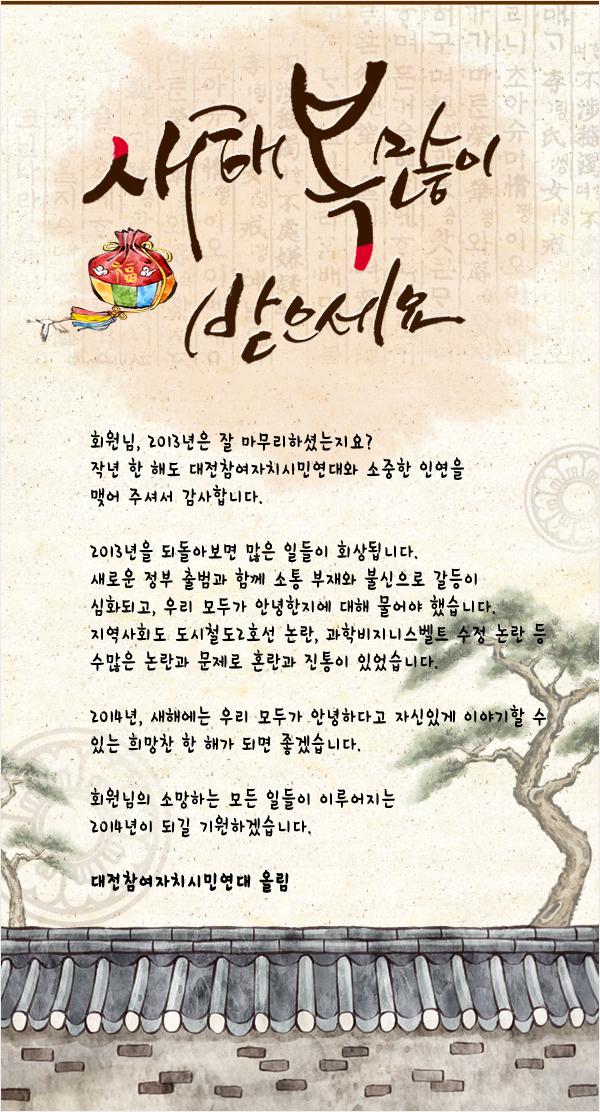 새해 복 많이
받으세요
福
회원님, 2013년은 잘 마무리하셨는지요?
작년 한 해도 대전참여자치시민연대와 소중한 인연을
맺어 주셔서 감사합니다.
2013년을 되돌아보면 많은 일들이 회상됩니다.
새로운 정부 출범과 함께 소통 부재와 불신으로 갈등이
심화되고, 우리 모두가 안녕한지에 대해 물어야 했습니다.
지역사회도 도시철도2호선 논란, 과학비지니스벨트 수정 논란 등
수많은 논란과 문제로 혼란과 진통이 있었습니다.
2014년, 새해에는 우리 모두가 안녕하다고 자신있게 이야기할 수
있는 희망찬 한 해가 되면 좋겠습니다.
회원님의 소망하는 모든 일들이 이루어지는
2014년이 되길 기원하겠습니다.
대전참여자치시민연대 올림